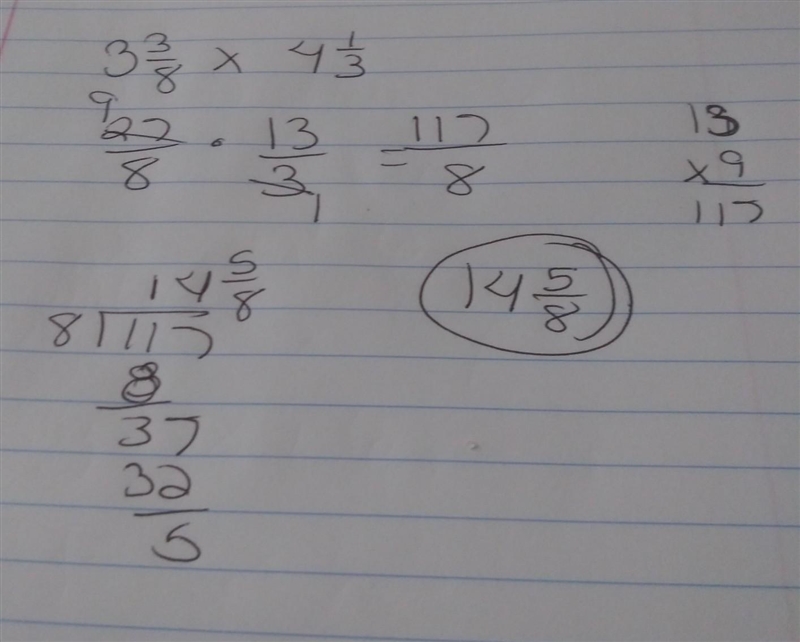 3 3/8 x 4 1/3
9
27/8 · 13/3 = 117/8
1
13
x9
117
14 5/8
8)117
8
37
32
5
14 5/8